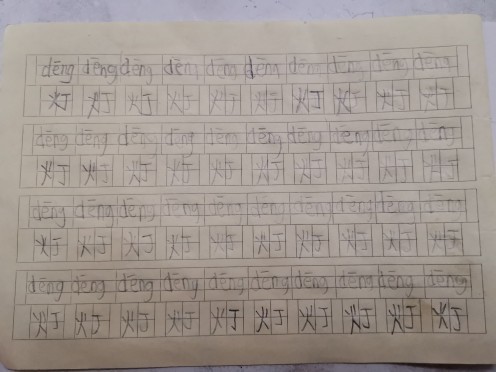 dēng dēng dēng dēng dēng dēng dēng dēng dēng dēng
灯 灯 灯 灯 灯 灯 灯 灯 灯 灯
dēng dēng dēng dēng dēng dēng dēng dēng dēng dēng
灯 灯 灯 灯 灯 灯 灯 灯 灯 灯
dēng dēng dēng dēng dēng dēng dēng dēng dēng dēng
灯 灯 灯 灯 灯 灯 灯 灯 灯 灯
dēng dēng dēng dēng dēng dēng dēng dēng dēng dēng
灯 灯 灯 灯 灯 灯 灯 灯 灯 灯